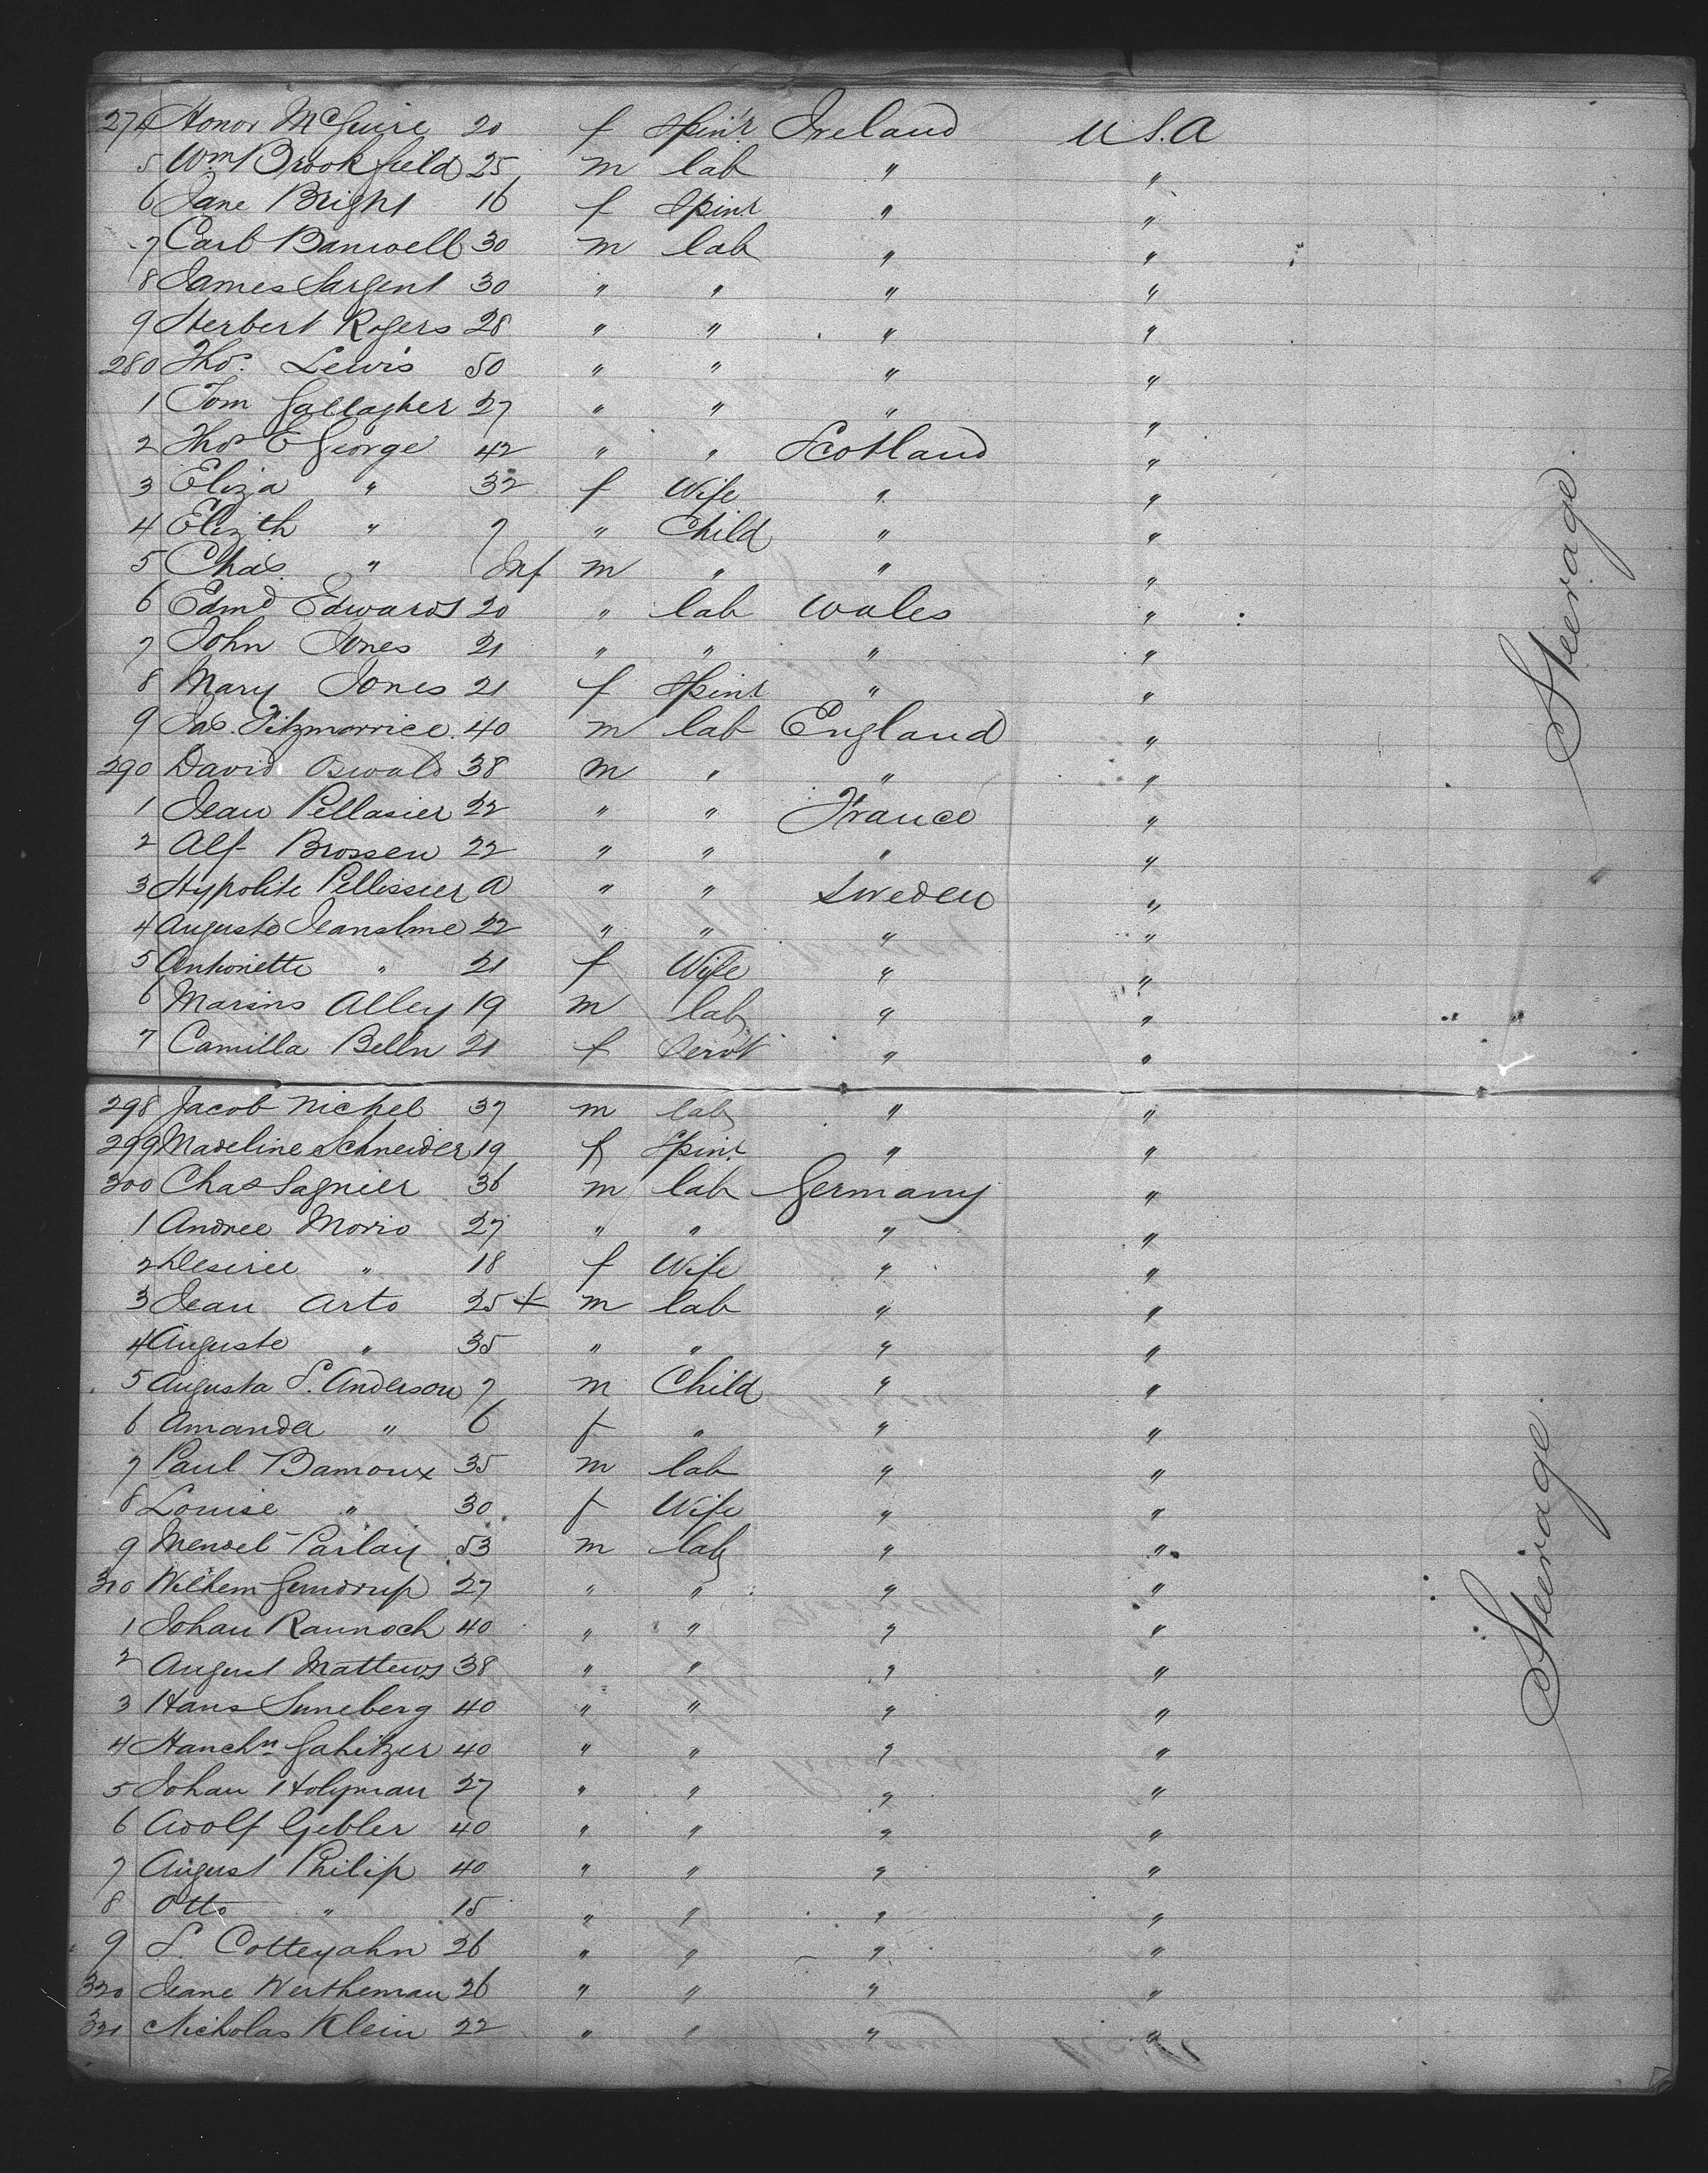 274 Honor McGuire 20 f Spinr Ireland U.S.A
5 Wm Brookfield 25 m lab " "
6 Jane Bright 16 f Spinr " "
7 Carl Banwell 30 m lab " "
8 James Sargent 30 " " " "
9 Herbert Rogers 28 " " " "
280 Thos. Lewis 50 " " " "
1 Tom Gallagher 27 " " " "
2 Thos E George 42 " " Scotland "
3 Eliza " 32 f Wife " "
4 Elizth " 7 " Child " "
5 Chas. " Inf m " " "
6 Edmd Edwards 20 " lab Wales "
7 John Jones 21 " " " "
8 Mary Jones 21 f Spinr " "
9 Jas. Fitzmorrice 40 m lab England "
290 David Oswald 38 m " " "
1 Jean Pellasier 22 " " France "
2 Alf Brossen 22 " " " "
3 Hypolite Pellissier A " " Sweden "
4 Auguste Jeanslme 22 " " " "
5 Antoinette " 21 f Wife " "
6 Marins Alley 19 m lab " "
7 Camilla Belln 21 f Servt " "
298 Jacob Nickel 37 m lab " "
299 Madeline Schneider 19 f Spinr " "
300 Chas Sagnier 36 m lab Germany "
1 Andree Morio 27 " " " "
2 Desiree " 18 f Wife " "
3 Jean Arto 25 + m lab " "
4 Auguste " 35 " " " "
5 Augusta S. Anderson 7 m Child " "
6 Amanda " 6 f " " "
7 Paul Bamoux 35 m lab " "
8 Louise " 30 f Wife " "
9 Mendel Parlay 53 m lab " "
310 Wilhem 27 " " " "
1 Johan Raunoch 40 " " " "
2 August Mattews 38 " " " "
3 Hans Suneberg 40 " " " "
4 Hanchn Gahitzer 40 " " " "
5 Johan Holyman 27 " " " "
6 Adolf Gebler 40 " " " "
7 August Philip 40 " " " "
8 Otto " 15 " " " "
9 S. Cotteyahn 26 " " " "
320 Jeane Wertheman 26 " " " "
321 Nicholas Klein 22 " " " "
Steerage
Steerage